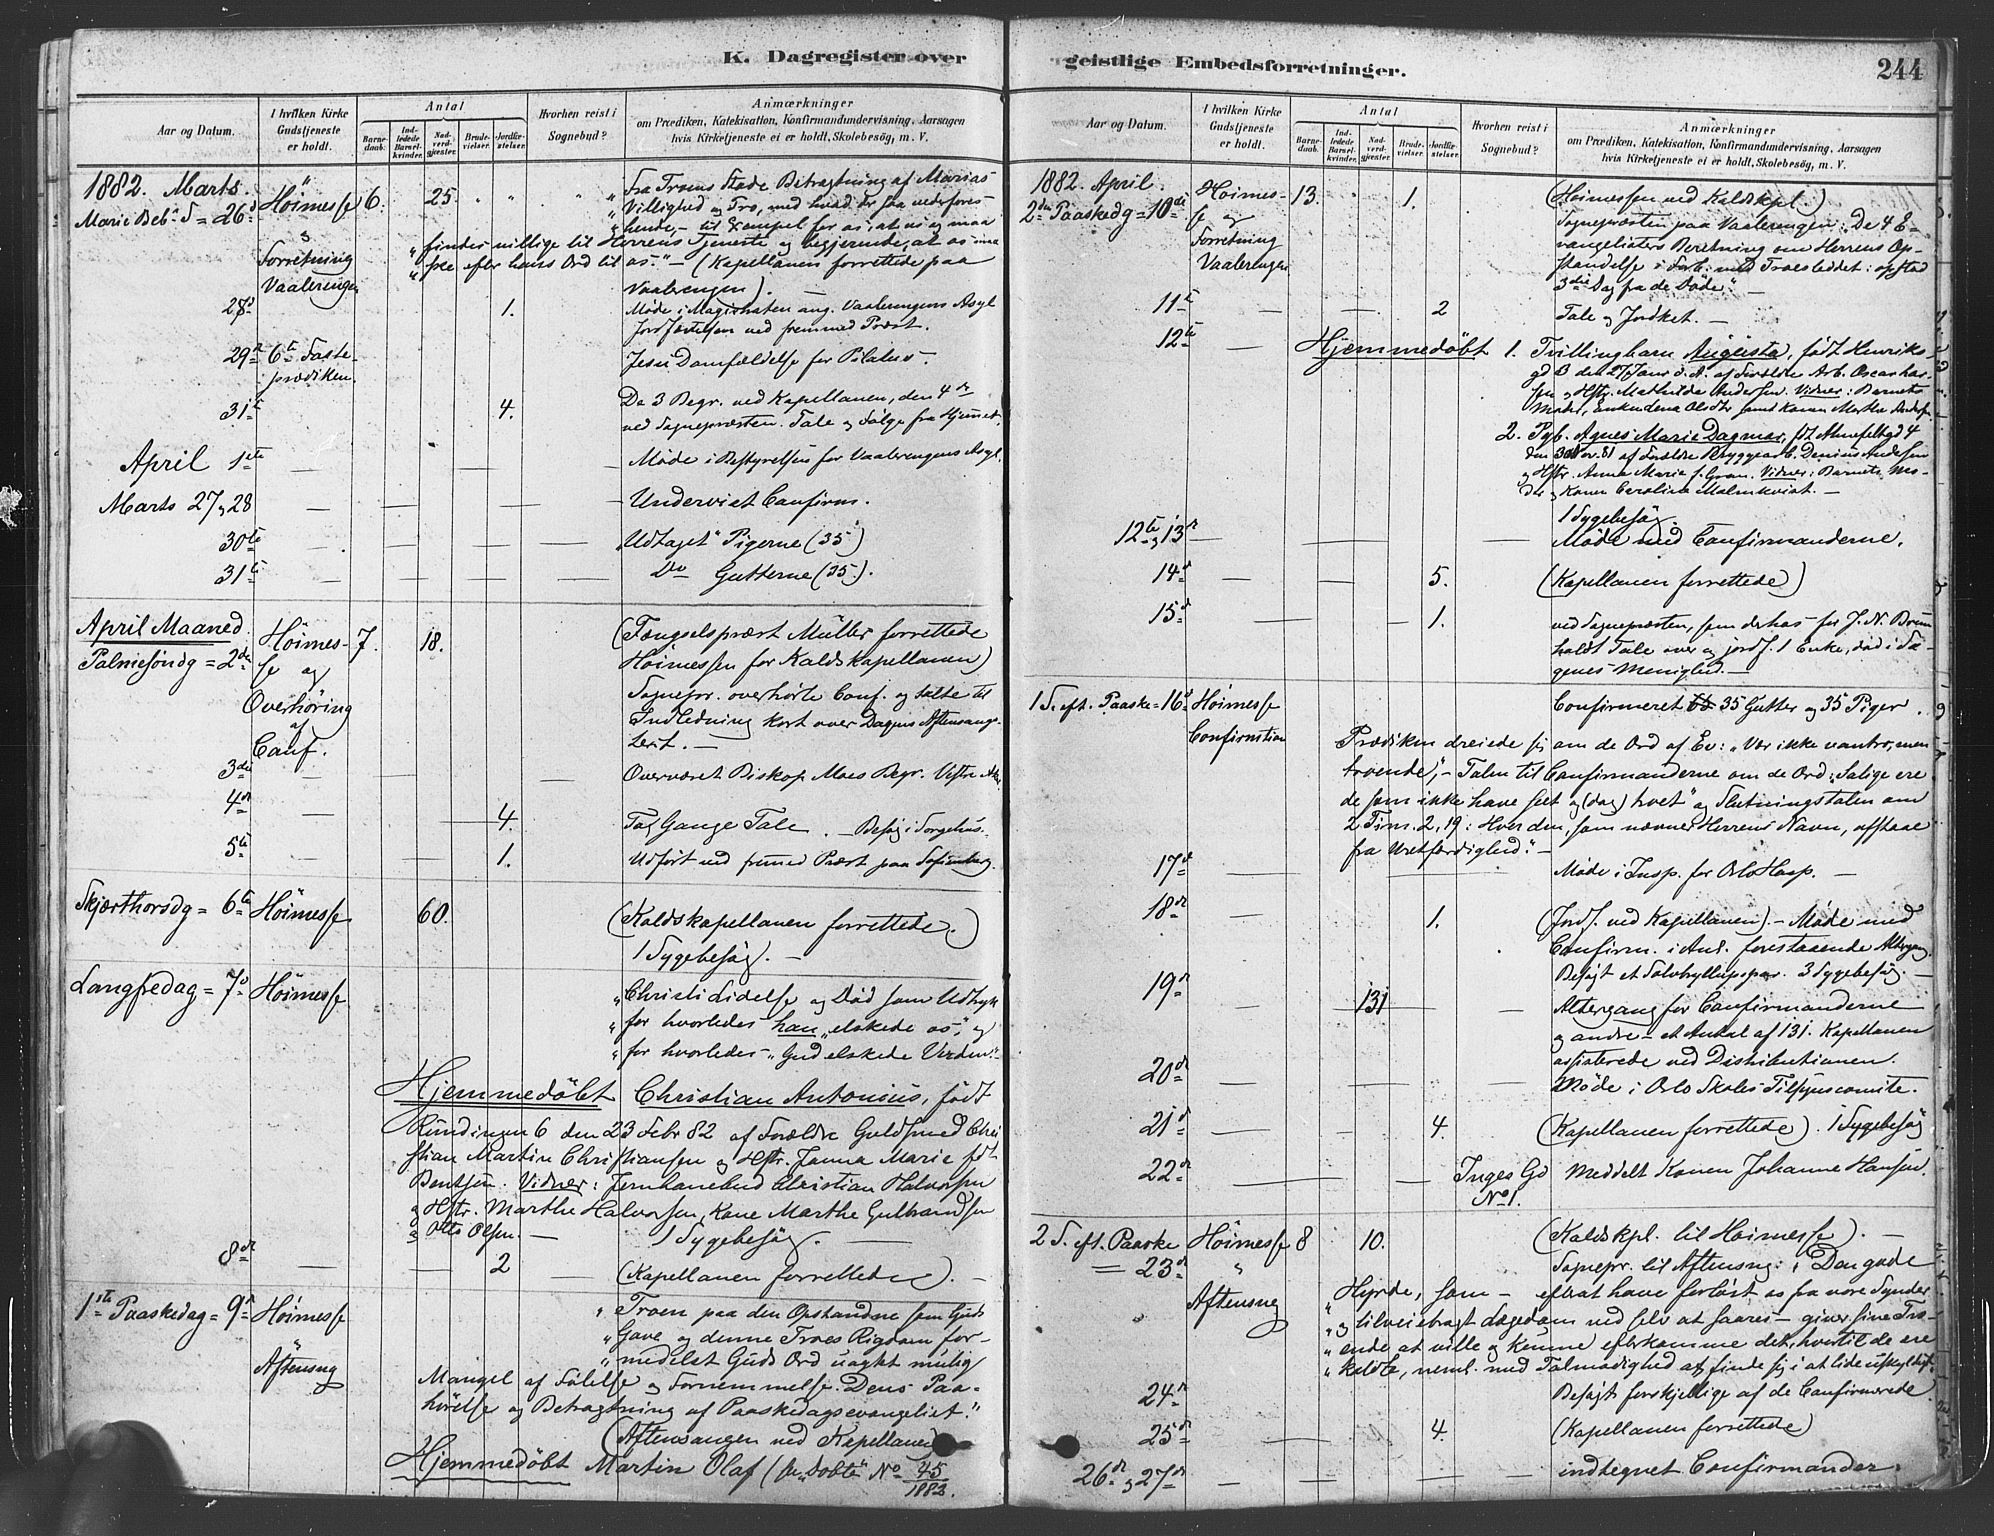 K. Dagregister over
Aar og Datum.
I hvilken Kirke Gudstjeneste er holdt.
Antal
Barne-daab.
Ind-ledede Barsel-kvinder.
Nad-verd-gjæster.
Brude-vielser.
Jordfæ-stelser.
Hvorhen reist i Sognebud?
Anmærkninger
om Prædiken, Katekisation, Konfirmandundervisning, Aarsagen
hvis Kirketjeneste ei er holdt, Skolebesøg, m. V.
1882. Marts.
Marie Beb. S = 26d Höimesse 6. 25. "Fra Troens Stade Betragtning af Marias
"Villighed og Tro, med hvad der saa vederfores
"hende, - til Exempel for os, at vi og maa
Forretning "findes villige til Herrens Tjeneste og begjerende, at os maa
Vaalerengen "ske efter hans Ord til os." - (Kapellanen forrettede paa
Vaalerengen). -
27d 1. Møde i Magistraten ang. Vaalerengens Asyl
Jordfæstelsen ved fremmed Præst.
29d 6te Faste-
prædiken. Jesu Domfældelse for Pilatus -
31te 4. De 3 Begr. ved Kapellanen, den 4de
ved Sognepræsten. Tale og Følge fra Hjemmet.
April 1ste Møde i Bestyrelsen for Vaalerengens Asyl.
Marts 27 og 28 Underviist Confirm.
30te "Udtaget" Pigerne (35)
31te Do Gutterne (35).
April Maaned
Palmesöndg = 2den Höimes- 7. 18. (Fængselspræst Müller forrettede
se og Höimessen for Kaldskapellanen)
Overhöring Sognepr. overhørte Conf. og talte til
af Indledning kort over Dagens Aftensangs-
Conf. text. -
3die Overværet Biskop Moes Begr. Vestre Ak.
4de 4. To Gange Tale. - Besøg i Sorgehus.
5te 1. Udført ved fremmed Præst paa Sofienberg.
Skjærthorsdg = 6te Höimesse 60. (Kaldskapellanen forrettede.)
1 Sygebesög. -
Langfredag = 7de Höimesse "Christi Lidelse og Død som Udtryk
"for hvorledes han "elskede os," og
"for hvorledes "Gud elskede Verden".
Hjemmedöbt Christian Antonius, født
Rundingen 6 den 23 Febr 82 af Forældre Guldsmed Chri-
stian Martin Christiansen og Hstr. Janna Marie fdt
Bentsen. Vidner: Jernbanebud Christian Halvorsen
og Hstr. Marthe Halvorsen, Kone Marthe Gulbrandsen
og Otto Olsen. - 1 Sygebesög. -
8de 2 (Kapellanen forrettede). -
1ste Paaskedag = 9de Höimesse "Troen paa den Opstandne som Guds
"Gave og denne Troes Rigdom for-
Aftensng "medelst Guds Ord uagtet mulig
Mangel af Følelse og Fornemmelse. Dens Paa-
hörelse og Betragtning af Paaskedagsevangeliet."
(Aftensangen ved Kapellanen)
Hjemmedöbt Martin Olaf (se "Döbte" No 45/1882.
geistlige Embedsforretninger. 244
Aar og Datum.
I hvilken Kirke Gudstjeneste er holdt.
Antal
Barne-daab.
Ind-ledede Barsel-kvinder.
Nad-verd-gjæster.
Brude-vielser.
Jordfæ-stelser.
Hvorhen reist i Sognebud?
Anmærkninger
om Prædiken, Katekisation, Konfirmandundervisning, Aarsagen
hvis Kirketjeneste ei er holdt, Skolebesøg, m. V.
1882. April.
2den Paaskedg = 10de Höimes- 13. 1. (Höimessen ved Kaldskpl.)
se og Sognepræsten paa Vaalerengen: De 4 E-
Forretning vangelisters Beretning om Herrens Op-
Vaalerengen standelse i Forb. med Troesleddet: opstod
3die Dag fra de Døde." -
11te 2 Tale og Jordket. -
12te Hjemmedöbt 1. Tvillingbarn Augusta, født Henriks-
gd 3 den 27 Janr d. A. af Forældre Arb. Oscar Lar-
sen og Hstr. Mathilde Andersen. Vidner: Barnets
Moder, Enkudena Olsdtr samt Konen Marthe Anders.
2. Pgb. Agnes Marie Dagmar, fdt Almfeltgd 4
den 30 Nov. 81 af Forældre Bryggearb. Denius Andersen
og Hstr. Anna Marie f. Gran. Vidner: Barnets Mo-
der og Konen Carolina Malmkvist. -
1 Sygebesög.
12te og 13de Møde med Confirmanderne.
14de 5. (Kapellanen forrettede)
15de 1. ved Sognepræsten, som derhos for J. N. Bruun
holdt Tale over og jordf. 1 Enke, død i Sa-
genes Menighed. -
1 S. eft. Paaske = 16de Höimesse Confirmeret 35 Gutter og 35 Piger.
Confirmation Prædiken dreiede sig om de Ord af Ev: "Vær ikke vantro, men
troende", - Talen til Confirmanderne om de Ord: "Salige ere
de som ikke have seet og (dog) troet" og Slutningstalen om
2 Tim. 2, 19: Hver den, som nævner Herrens Navn, afstaae
fra Uretfærdighed." -
17de Møde i Insp. for Oslo Hosp. -
18de 1. (Jordf. ved Kapellanen). - Møde med
Confirm. i Anl. forestaaende Altergang
Besøgt et Sølvbryllupspar. 3 Sygebesög. -
19de 131 Altergang for Confirmanderne
og andre - et Antal af 131. Kapellanen
assisterede ved Distributionen.
20de Møde i Oslo Skoles Tilsynscomite.
21de 4. (Kapellanen forrettede). 1 Sygebesög
22de Inges Gd Meddelt Konen Johanne Hansen.
No 1.
2 S. eft. Paaske Höimesse 8 10. (Kaldskpl. til Höimesse). -
= 23de " Sognepr. til Aftensng: "Den gode
Aftensng "Hyrde, som - efterat have forløst os fra vore Synder
"og tilveiebragt Lægedom ved selv at saares - giver sine Tro-
"ende at ville og kunne efterkomme det, hvortil de ere
"kaldte, neml. med Taalmodighed at finde sig i at lide uskyldigt.
24de Besøgt forskjellige af de Confirmerede
25de 4. (Kapellanen forrettede)
26de og 27de indtegnet Confirmander.